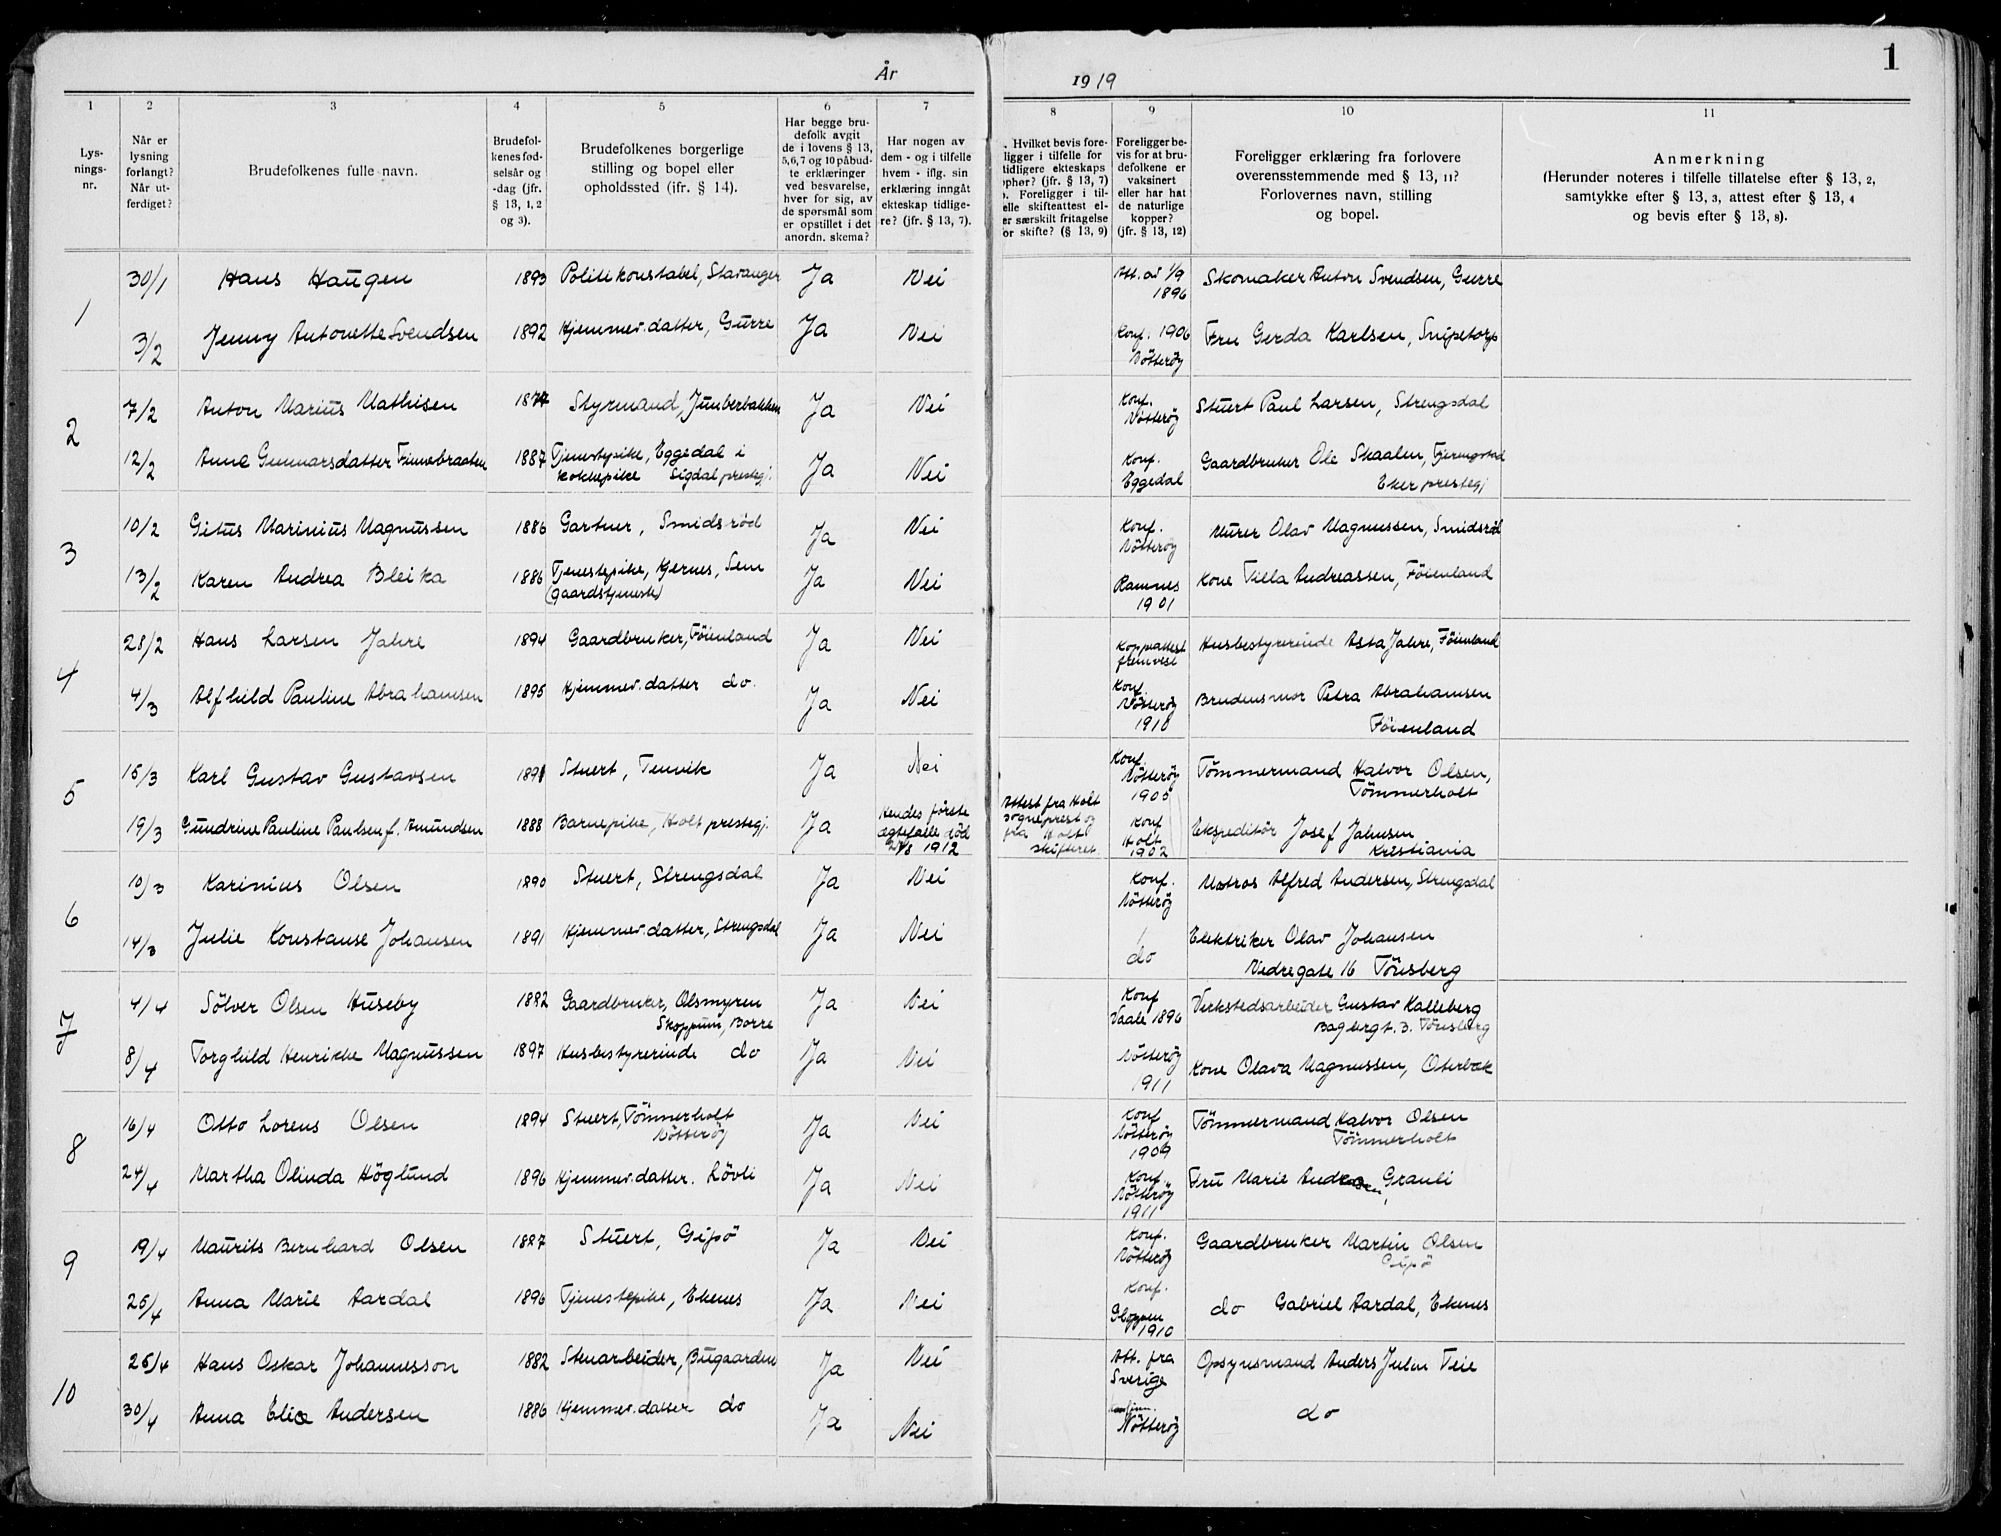 År 1919
1
1 2 3 4 5 6 7 8 9 10 11
Lys-
nings-
nr.
Når er
lysning
forlangt?
Når ut-
ferdiget?
Brudefolkenes fulle navn.
Brudefol-
kenes fød-
selsår og
-dag (jfr.
§ 13, 1, 2
og 3).
Brudefolkenes borgerlige
stilling og bopel eller
opholdssted (ifr. § 14).
Har begge bru-
defolk avgit
de i lovens § 13,
5, 6, 7 og 10 påbud-
te erklæringer
ved besvarelse,
hver for sig, av
de spørsmål som
er opstillet i det
anordn. skema?
Har nogen av
dem - og i tilfelle
hvem - iflg. sin
erklæring inngått
ekteskap tidlige-
re? (jfr. § 13, 7).
. Hvilket bevis fore-
ligger i tilfelle for
tidligere ekteskaps
ophør? (jfr. § 13, 7)
. Foreligger i til-
elle skifteattest el-
er særskilt fritagelse
or skifte? (§ 13, 9)
Foreligger be-
vis for at bru-
defolkene er
vaksinert
eller har hat
de naturlige
kopper?
(jfr. § 13, 12)
Foreligger erklæring fra forlovere
overensstemmende med § 13, 11?
Forlovernes navn, stilling
og bopel.
Anmerkning
(Herunder noteres i tilfelle tillatelse efter § 13, 2,
samtykke efter § 13, 3, attest efter § 13, 4
og bevis efter § 13, 8).
1
30/1 Hans Haugen 1893 Politikonstabel, Stavanger Ja Nei Att. av 1/9 Skomaker Anton Svendsen, Gurre
1896
3/2 Jenny Antonette Svendsen 1892 Hjemmev. datter, Gurre Ja Nei Konf. 1906 Fru Gerda Karlsen, Snipetorp
Nötteröy
2
7/2 Anton Marius Mathisen 1877 Styrmand, Junberbakken Ja Nei Konf. Stuert Paul Larsen, Strengsdal
Nötteröy
12/2 Anna Gunnarsdatter Finnebraaten 1887 Tjenestepike, Eggedal i Ja Nei Konf. Gaardbruker Ole Skaalen,
kokkepike Sigdal prestegj. Eggedal Eker prestegj
3
10/2 Gitus Marinius Magnussen 1886 Gartner, Smidsröd Ja Nei Konf. Murer Olav Magnussen, Smidsröd
Nötteröy
13/2 Karen Andrea Bleika 1886 Tjenestepike, Kjernes, Sem Ja Nei Ramnes Kone Tilla Andreassen, Föienland
(gaardstjeneste) 1901
4
28/2 Hans Larsen Jahre 1894 Gaardbruker, Föienland Ja Nei Koppattest Husbestyrerinde Asta Jahre, Föienland
fremvist
4/3 Alfhild Pauline Abrahamsen 1895 Hjemmev. datter do. Ja Nei Konf. Brudens mor Petra Abrahamsen
Nötteröy
1910 Föienland
5
15/3 Karl Gustav Gustavsen 1891 Stuert, Tenvik Ja Nei Konf. Tömmermand Halvor Olsen,
Nötteröy Tömmerholt
1905
19/3 Gundrine Pauline Paulsen f. Amundsen 1888 Barnepike, Holt prestegj. Ja Hendes förste Attest fra Holt Konf Ekspeditör Josef Jahnsen
ægtefælle död sogneprest og Holt Kristiania
1912 fra Holt 1902
skifteret.
6
10/3 Karinius Olsen 1890 Stuert, Strengsdal Ja Nei Konf. Matros Alfred Andersen, Strengsdal
Nötteröy
14/3 Julie Konstanse Johansen 1891 Hjemmev. datter, Strengsdal Ja Nei do Elektriker Olav Johansen
Nedregate 16 Tönsberg
7
4/4 Sölver Olsen Huseby 1882 Gaardbruker, Olsmyren Ja Nei Konf Verkstedsarbeider Gustav Kalleberg
Skoppum, Borre Vaale 1896 Bagbergt. 3. Tönsberg
8/4 Torghild Henrikke Magnussen 1897 Husbestyrerinde do Ja Nei Nötteröy Kone Olava Magnussen, Oterbæk
1911
8
16/4 Otto Lorens Olsen 1894 Stuert, Tömmerholt Ja Nei Konf Tömmermand Halvor Olsen
Nötteröy Nötteröy Tömmerholt
1909
24/4 Martha Olinda Höglund 1896 Hjemmev. datter. Lövli Ja Nei Konf. Fru Marie Andersen, Granli
Nötteröy
1911
9
19/4 Maurits Bernhard Olsen 1887 Stuert, Gipö Ja Nei Konf. Gaardbruker Martin Olsen
Nötteröy Gipö
25/4 Anna Marie Aardal 1896 Tjenestepike, Ekenes Ja Nei Konf. do Gabriel Aardal, Ekenes
Gloppen
1910
10
25/4 Hans Oskar Johannesson 1882 Stenarbeider, Bugaarden Ja Nei Att. fra Opsynsmand Anders Julin Teie
Sverige
30/4 Anna Elise Andersen 1886 Hjemmev. datter do Ja Nei Nötteröy do